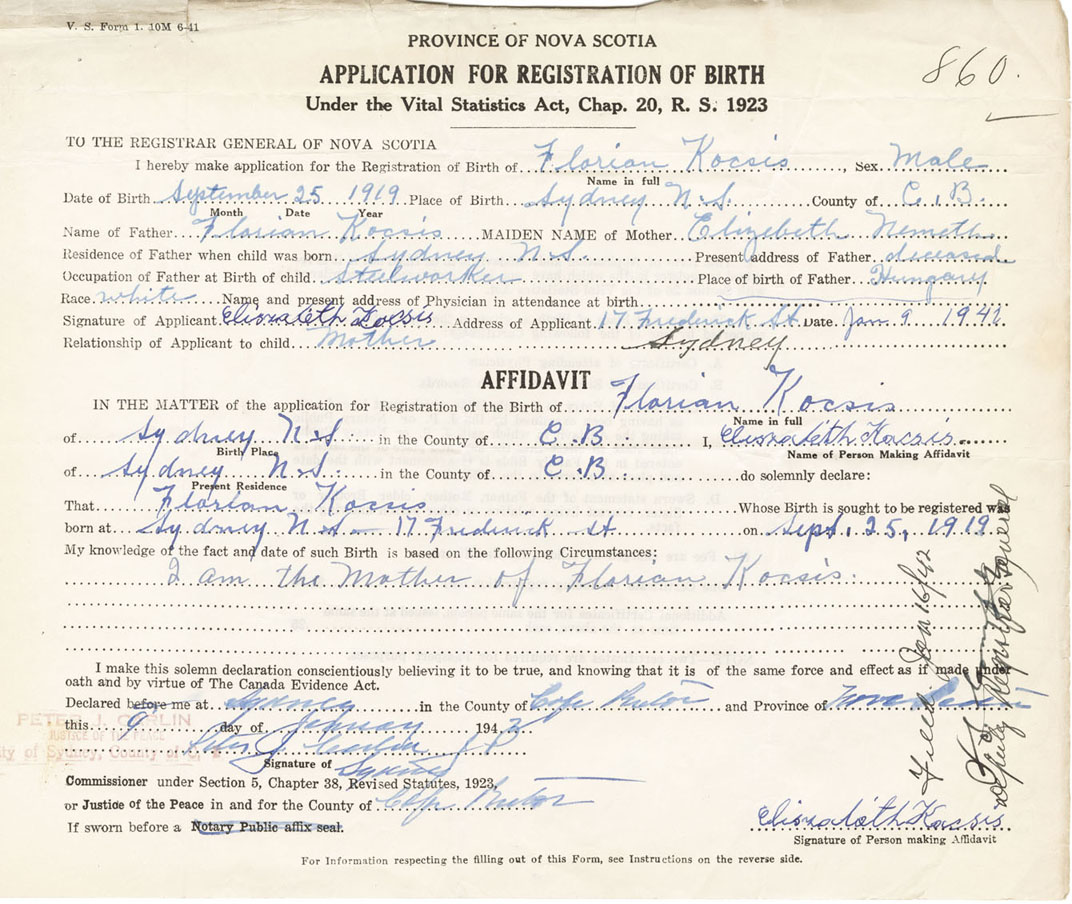 V. S. Form 1. 10M 6-41
860.
PROVINCE OF NOVA SCOTIA
APPLICATION FOR REGISTRATION OF BIRTH
Under the Vital Statistics Act, Chap. 20, R. S. 1923
TO THE REGISTRAR GENERAL OF NOVA SCOTIA
I hereby make application for the Registration of Birth of Florian Kocsis, Sex Male
Name in full
Date of Birth September 25 1919 Place of Birth Sydney N.S. County of C.B.
Month Date Year
Name of Father Florian Kocsis MAIDEN NAME of Mother Elizebeth Nemeth
Residence of Father when child was born Sydney N.S. Present address of Father deceased
Occupation of Father at Birth of child Steelworker Place of birth of Father Hungary
Race white Name and present address of Physician in attendance at birth
Signature of Applicant Address of Applicant 17 Frederick St Date Jan 9 1942
Relationship of Applicant to child Mother Sydney
AFFIDAVIT
IN THE MATTER of the application for Registration of the Birth of Florian Kocsis
Name in full
of Sydney N.S. in the County of C.B I,
Birth Place Name of Person Making Affidavit
of Sydney N.S. in the County of C.B do solemnly declare:
Present Residence
That Florian Kocsis Whose Birth is sought to be registered was
born at Sydney N.S – 17 Frederick St on Sept. 25, 1919
My knowledge of the fact and date of such Birth is based on the following Circumstances:
I am the Mother of Florian Kocsis.
I make this solemn declaration conscientiously believing it to be true, and knowing that it is of the same force and effect as if made under
oath and by virtue of The Canada Evidence Act.
Declared before me at Sydney in the County of Cape Breton and Province of Nova Scotia
this 9 day of January 1942
PETER J. CARLIN
JUSTICE OF THE PEACE
City of Sydney, County of C. B
Peter J Carlin J P
Signature of Sydney
Commissioner under Section 5, Chapter 38, Revised Statutes, 1923,
or Justice of the Peace in and for the County of Cape Breton
If sworn before a Notary Public affix seal.
Signature of Person making Affidavit
For Information respecting the filling out of this Form, see Instructions on the reverse side.
Filed Jan 16/42
Deputy Registrar General